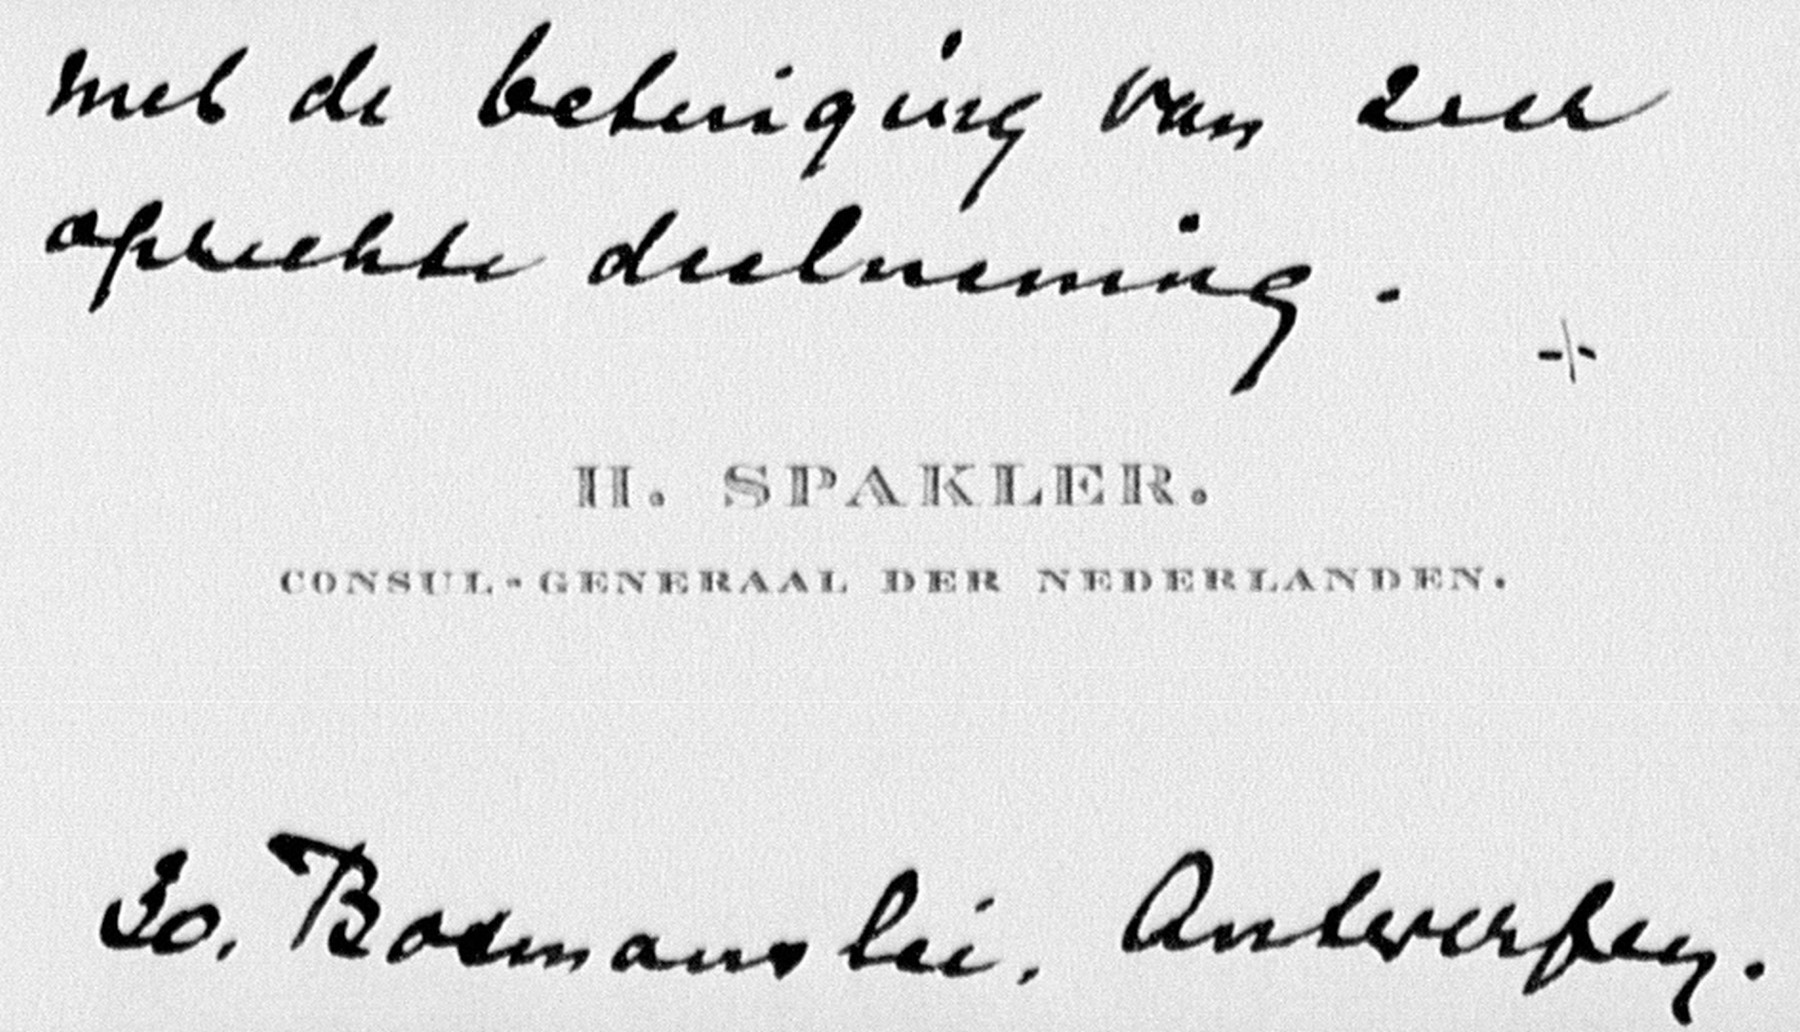 met de betuiging van zeer
oprechte deelneming.
H. SPAKLER.
CONSUL-GENERAAL DER NEDERLANDEN.
30, Bosmanslei, Antwerpen.